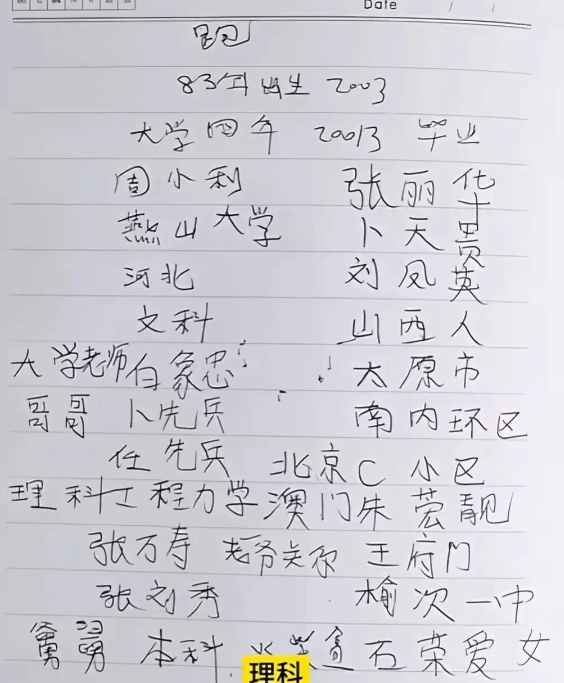 Date / /
跑
83年出生 2003
大学四年 20013 毕业
周小利 张丽华
燕山大学 卜天贵
河北 刘凤英
文科 山西人
大学老师白象忠 太原市
哥哥 卜先兵 南内环区
任先兵 北京C小区
理科工程力学 澳门朱芸靓
张万寿 王府门
张刘秀 榆次一中
本科 石荣爱女
理科